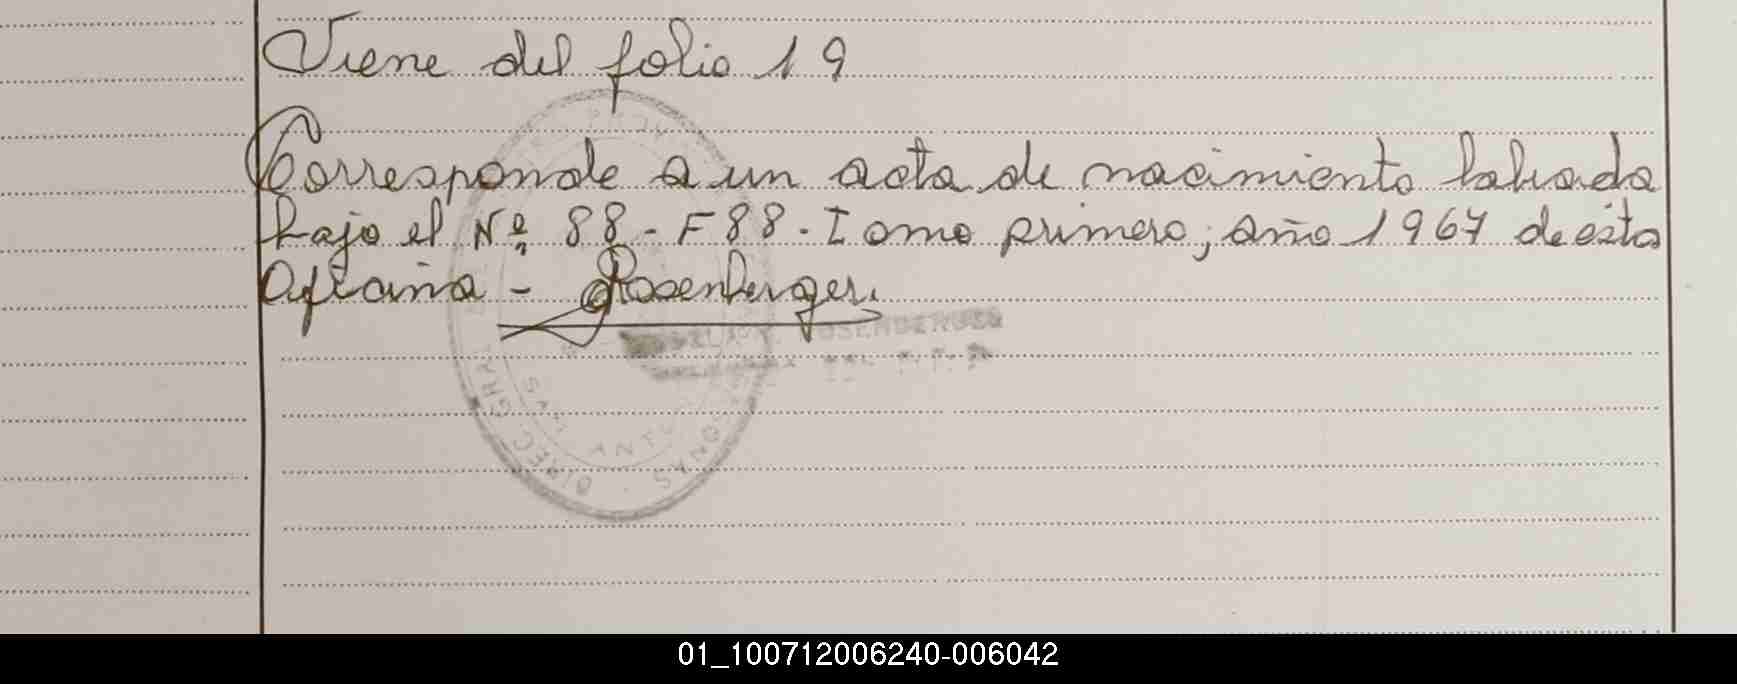 Viene del folio 19
Corresponde a un acta de nacimiento labrada
bajo el Nº 88 - F 88 - Tomo primero, año 1967 de esta
Oficina - Rosenberger.
ROSENBERGER
DIREC GRAL
SONAS
SAN ANTO
01_100712006240-006042